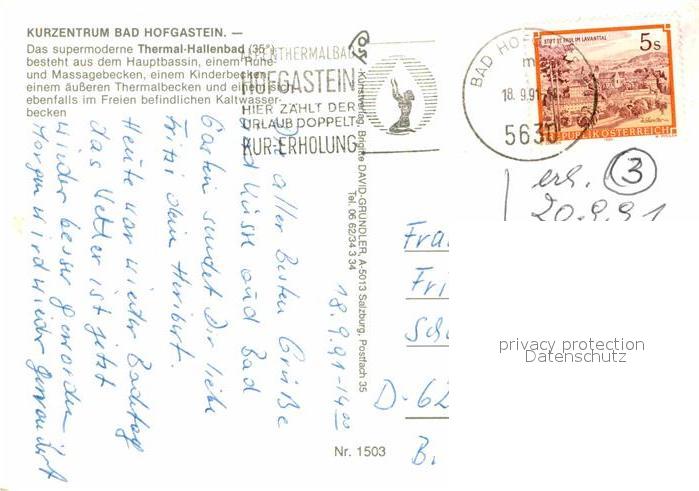 KURZENTRUM BAD HOFGASTEIN. —
Das supermoderne Thermal-Hallenbad (35°)
besteht aus dem Hauptbassin, einem Ruhe-
und Massagebecken, einem Kinderbecken,
einem äußeren Thermalbecken und einem
ebenfalls im Freien befindlichen Kaltwasser-
becken
HOFGASTEIN
HIER ZÄHLT DER
URLAUB DOPPELT
KUR-ERHOLUNG
BAD HOF
18. 9. 91
5630
STIFT ST. PAUL IM LAVANTTAL
5s
REPUBLIK ÖSTERREICH
erh. 3
20.9.91
Kunstverlag Brigitte DAVID-GRÜNDLER, A-5013 Salzburg, Postfach 35
Tel. 06 62/34 3 34
18.9.91-14 00
Die aller besten Grüße
und Küsse aus Bad
Gastein sendet Dir liebe
Fritzi dein Heribert.
Heute war wieder Badetag
das Wetter ist jetzt
wieder besser geworden
Morgen wird wieder gewandert
Fra
Fri
Sch
D-62
B.
privacy protection
Datenschutz
Nr. 1503